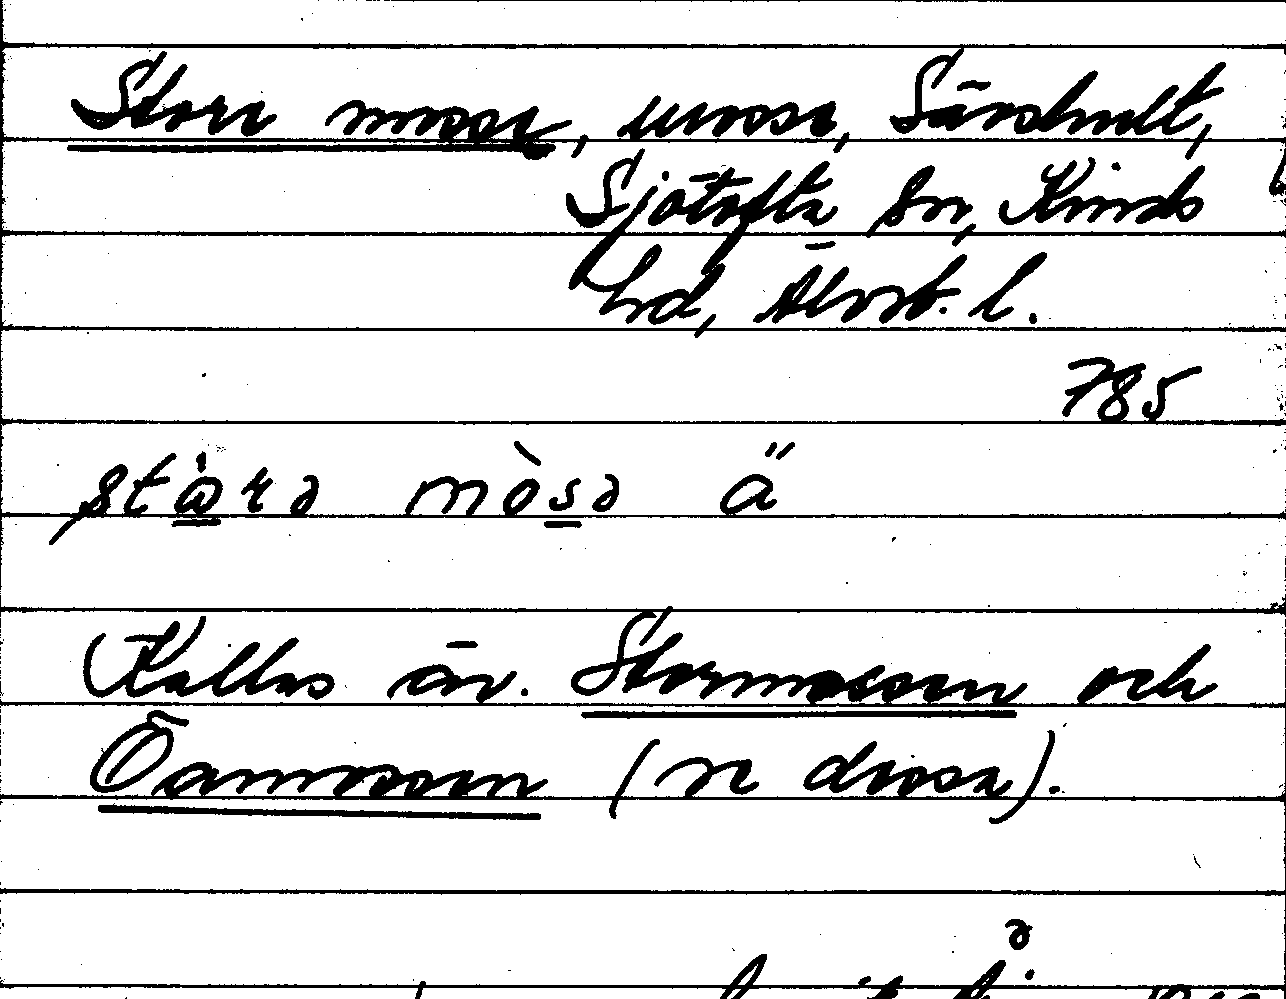 Store mosse, mosse, Särshult,
Sjötofta sn, Kinds
hd, Älvsb. l.
785
stɷ̀rə mòsə ä"
Kallas äv. Stormossen och
Öamossen (se dessa).